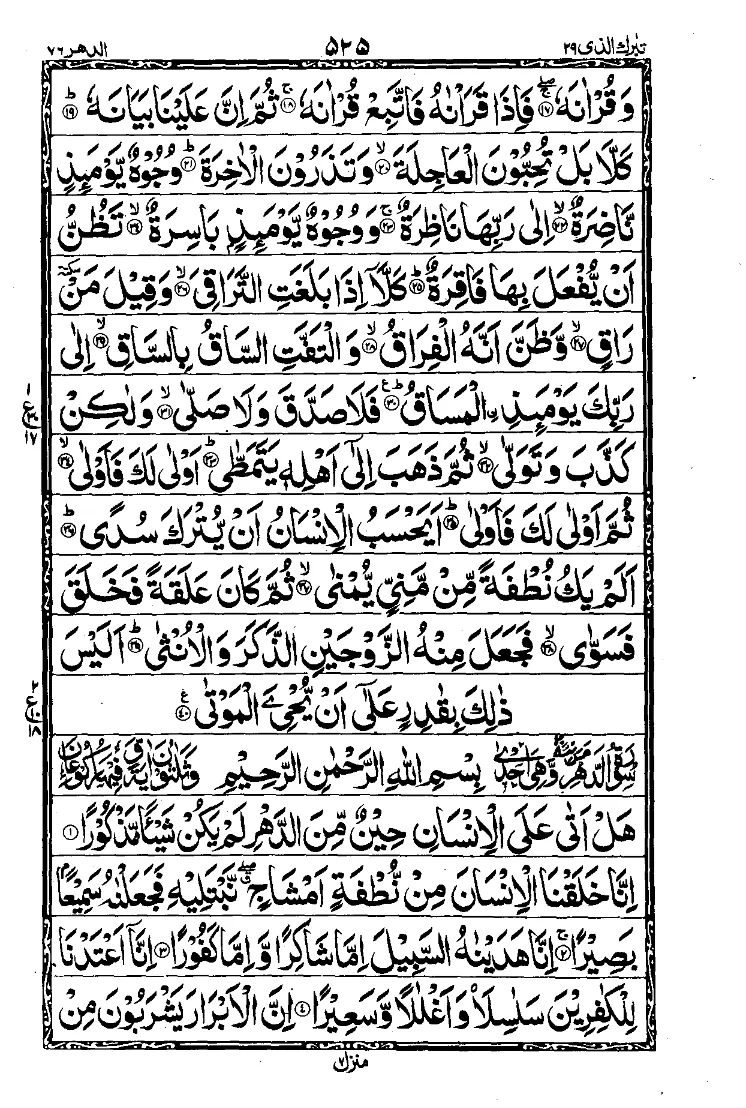 تبرك الذي ٢٩ ٥٢٥ الدهر ٧٦
وَ قُرْاٰنَهٗ ۚۖ ﴿۱۷﴾ فَاِذَا قَرَاْنٰهُ فَاتَّبِعْ قُرْاٰنَهٗ ۚ ﴿۱۸﴾ ثُمَّ اِنَّ عَلَیْنَا بَیَانَهٗ ؕ ﴿۱۹﴾
كَلَّا بَلْ تُحِبُّوْنَ الْعَاجِلَةَ ۙ ﴿۲۰﴾ وَ تَذَرُوْنَ الْاٰخِرَةَ ؕ ﴿۲۱﴾ وُجُوْهٌ یَّوْمَىِٕذٍ
نَّاضِرَةٌ ۙ ﴿۲۲﴾ اِلٰى رَبِّهَا نَاظِرَةٌ ۚ ﴿۲۳﴾ وَ وُجُوْهٌ یَّوْمَىِٕذٍۭ بَاسِرَةٌ ۙ ﴿۲۴﴾ تَظُنُّ
اَنْ یُّفْعَلَ بِهَا فَاقِرَةٌ ؕ ﴿۲۵﴾ كَلَّاۤ اِذَا بَلَغَتِ التَّرَاقِیَ ۙ ﴿۲۶﴾ وَ قِیْلَ مَنْ ٚ سكتة
رَاقٍ ۙ ﴿۲۷﴾ وَّ ظَنَّ اَنَّهُ الْفِرَاقُ ۙ ﴿۲۸﴾ وَ الْتَفَّتِ السَّاقُ بِالسَّاقِ ۙ ﴿۲۹﴾ اِلٰى
رَبِّكَ یَوْمَىِٕذِ ِ۟الْمَسَاقُ ؕ۠ ﴿۳۰﴾ فَلَا صَدَّقَ وَ لَا صَلّٰى ۙ ﴿۳۱﴾ وَ لٰكِنْ
كَذَّبَ وَ تَوَلّٰى ۙ ﴿۳۲﴾ ثُمَّ ذَهَبَ اِلٰۤى اَهْلِهٖ یَتَمَطّٰى ؕ ﴿۳۳﴾ اَوْلٰى لَكَ فَاَوْلٰى ۙ ﴿۳۴﴾
ثُمَّ اَوْلٰى لَكَ فَاَوْلٰى ؕ ﴿۳۵﴾ اَیَحْسَبُ الْاِنْسَانُ اَنْ یُّتْرَكَ سُدًى ؕ ﴿۳۶﴾
اَلَمْ یَكُ نُطْفَةً مِّنْ مَّنِیٍّ یُّمْنٰى ۙ ﴿۳۷﴾ ثُمَّ كَانَ عَلَقَةً فَخَلَقَ
فَسَوّٰى ۙ ﴿۳۸﴾ فَجَعَلَ مِنْهُ الزَّوْجَیْنِ الذَّكَرَ وَ الْاُنْثٰى ؕ ﴿۳۹﴾ اَلَیْسَ
ذٰلِكَ بِقٰدِرٍ عَلٰۤى اَنْ یُّحْیِۧ الْمَوْتٰى ۠ ﴿۴۰﴾
سورة الدهر مدنية وهي احدى بِسْمِ اللّٰهِ الرَّحْمٰنِ الرَّحِیْمِ وثلثون اية وفيها ركوعان
هَلْ اَتٰى عَلَى الْاِنْسَانِ حِیْنٌ مِّنَ الدَّهْرِ لَمْ یَكُنْ شَیْـًٔا مَّذْكُوْرًا ﴿۱﴾
اِنَّا خَلَقْنَا الْاِنْسَانَ مِنْ نُّطْفَةٍ اَمْشَاجٍ ۖۗ نَّبْتَلِیْهِ فَجَعَلْنٰهُ سَمِیْعًۢا
بَصِیْرًا ۚ ﴿۲﴾ اِنَّا هَدَیْنٰهُ السَّبِیْلَ اِمَّا شَاكِرًا وَّ اِمَّا كَفُوْرًا ﴿۳﴾ اِنَّاۤ اَعْتَدْنَا
لِلْكٰفِرِیْنَ سَلٰسِلَاۡ وَ اَغْلٰلًا وَّ سَعِیْرًا ﴿۴﴾ اِنَّ الْاَبْرَارَ یَشْرَبُوْنَ مِنْ
منزل ٧
١
ع
١٧
٢
ع
١٨